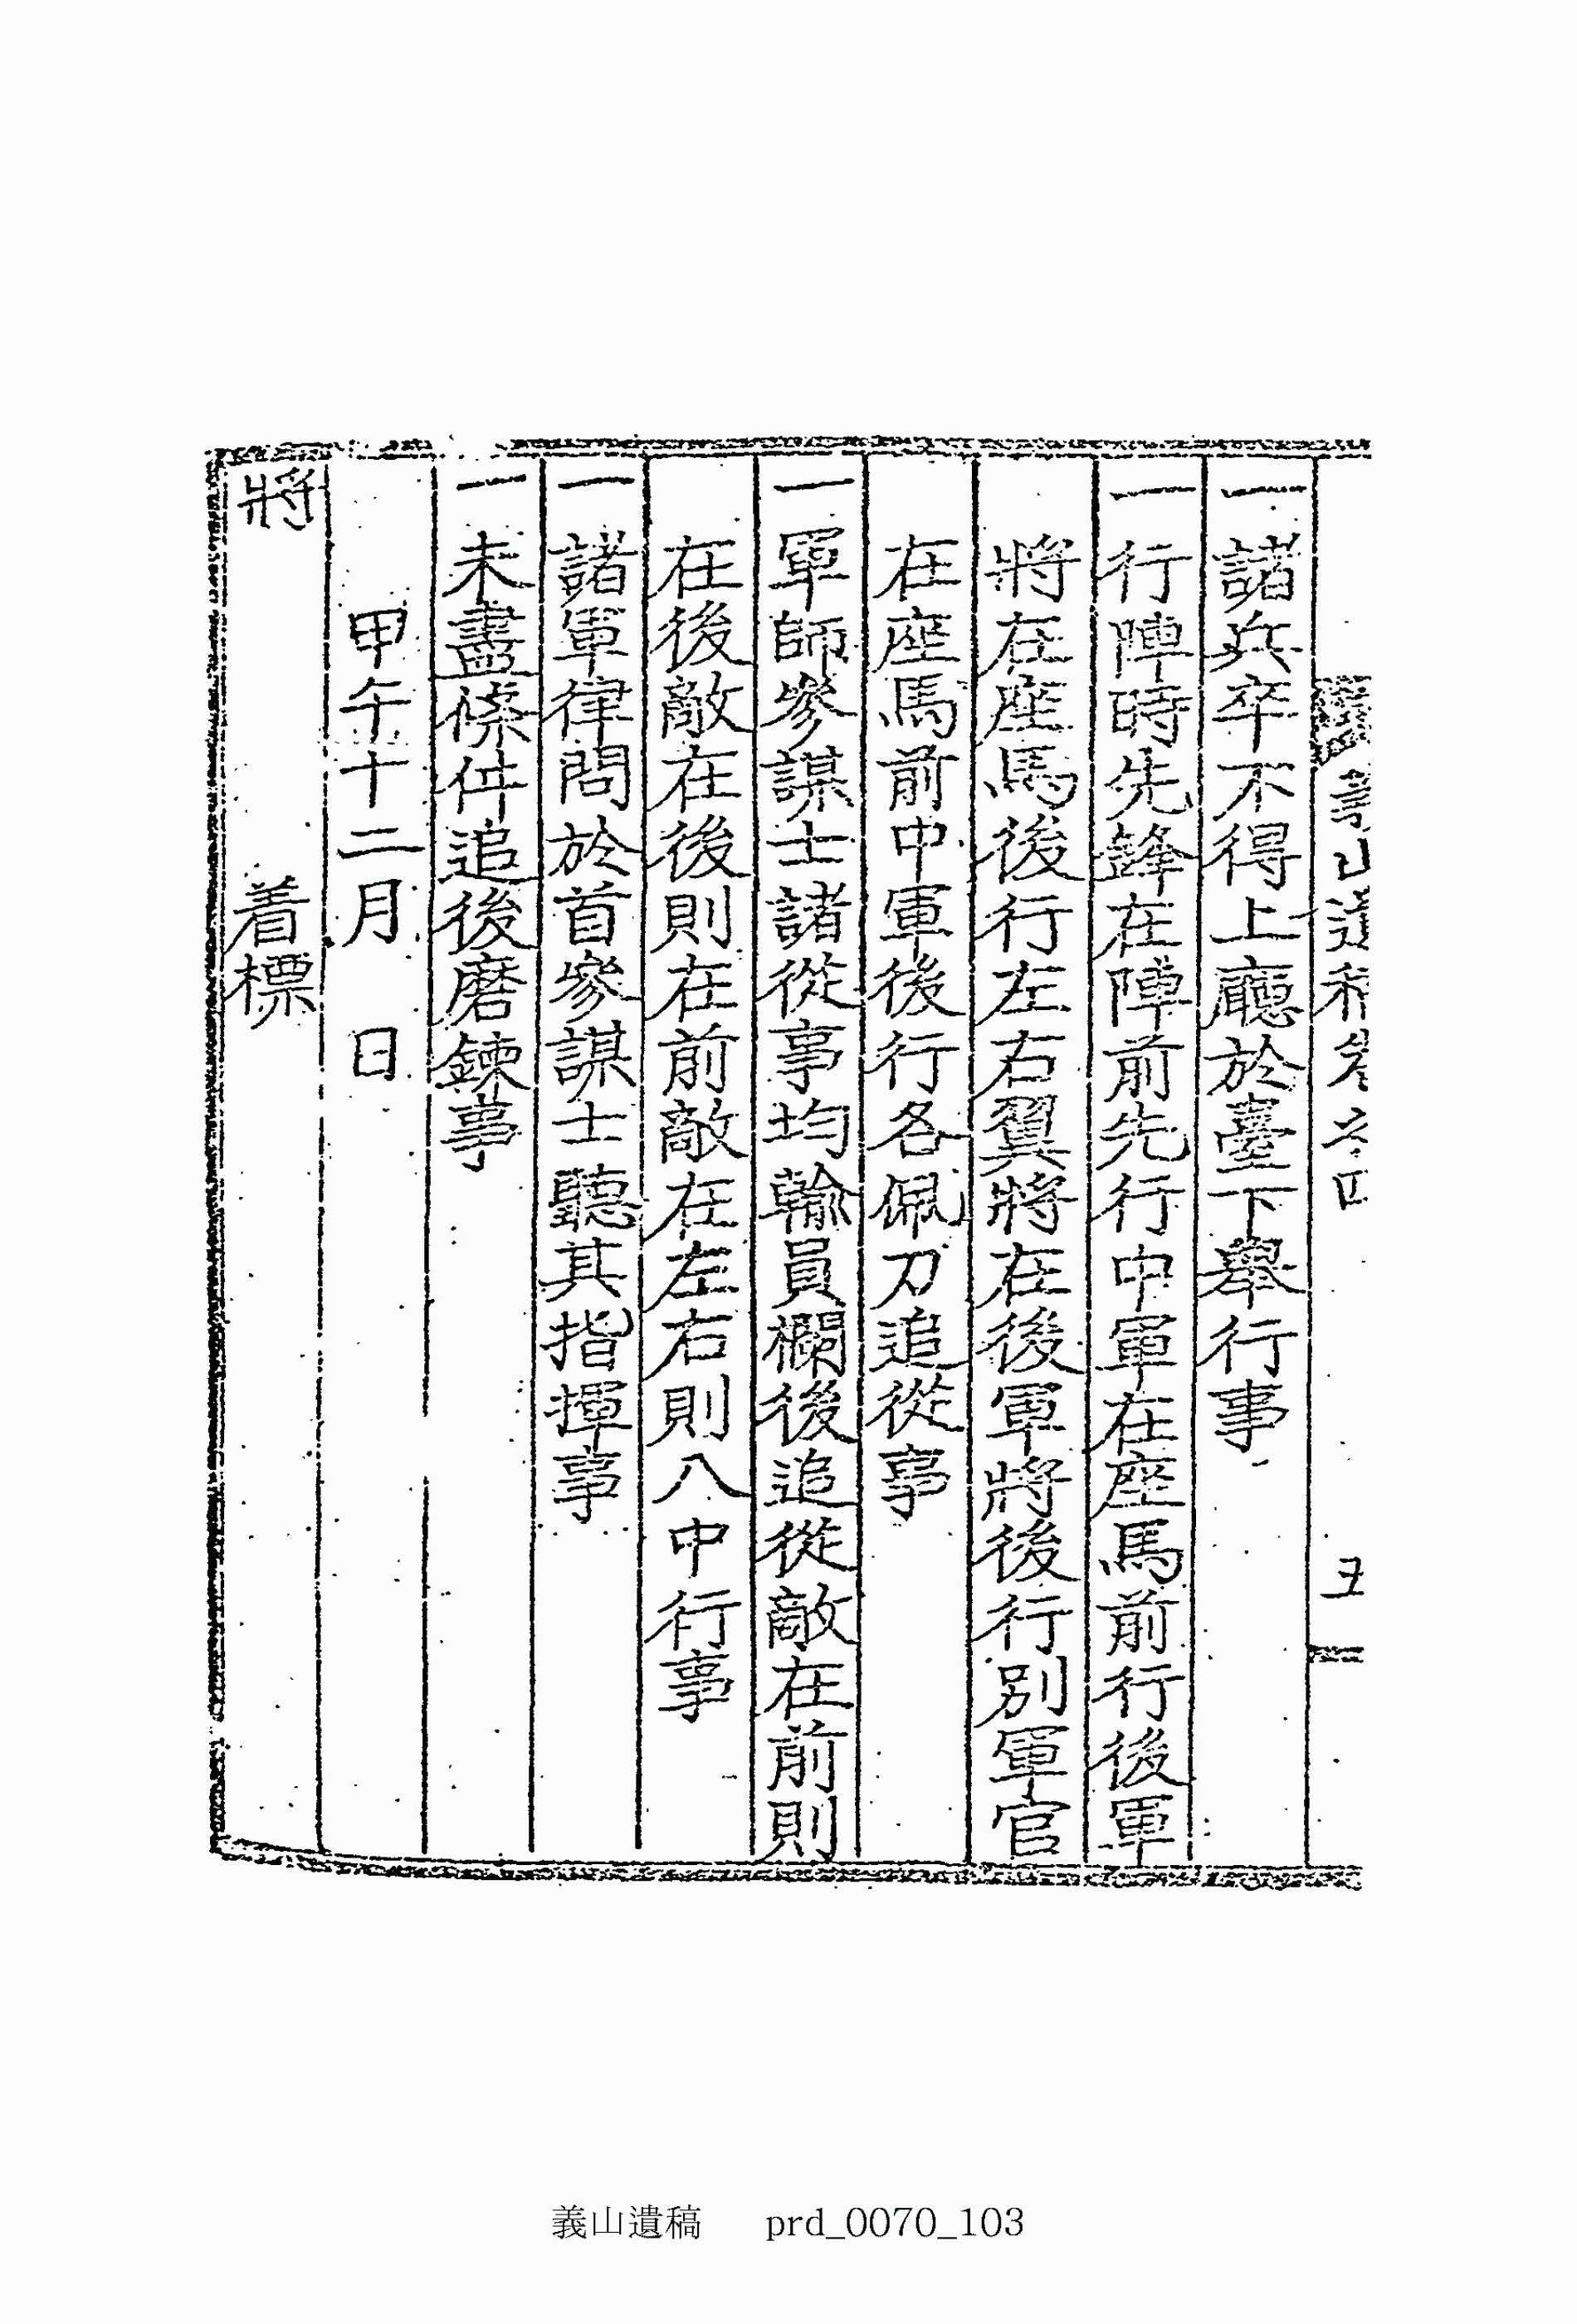 義山遺稿卷之四 五
一諸兵卒不得上廳於臺下擧行事
一行陣時先鋒在陣前先行中軍在座馬前行後軍
將在座馬後行左右翼將在後軍將後行別軍官
在座馬前中軍後行各佩刀追從事
一軍師參謀士諸從事均輸員欄後追從敵在前則
在後敵在後則在前敵在左右則八中行事
一諸軍律問於首參謀士聽其指揮事
一未盡條件追後磨鍊事
甲午十二月 日
將 着標
義山遺稿 prd_0070_103